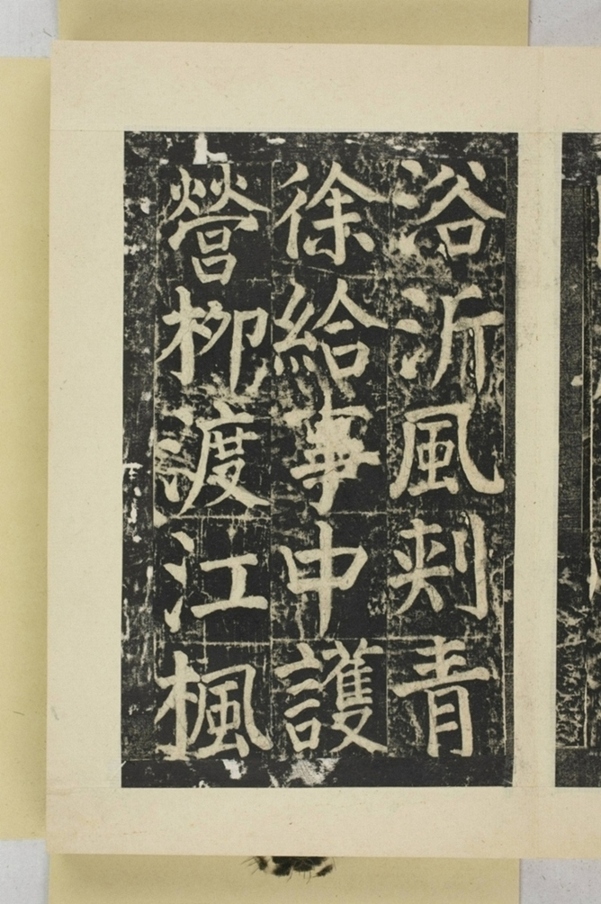 浴沂風刾青
徐給事申護
營柳渡江楓